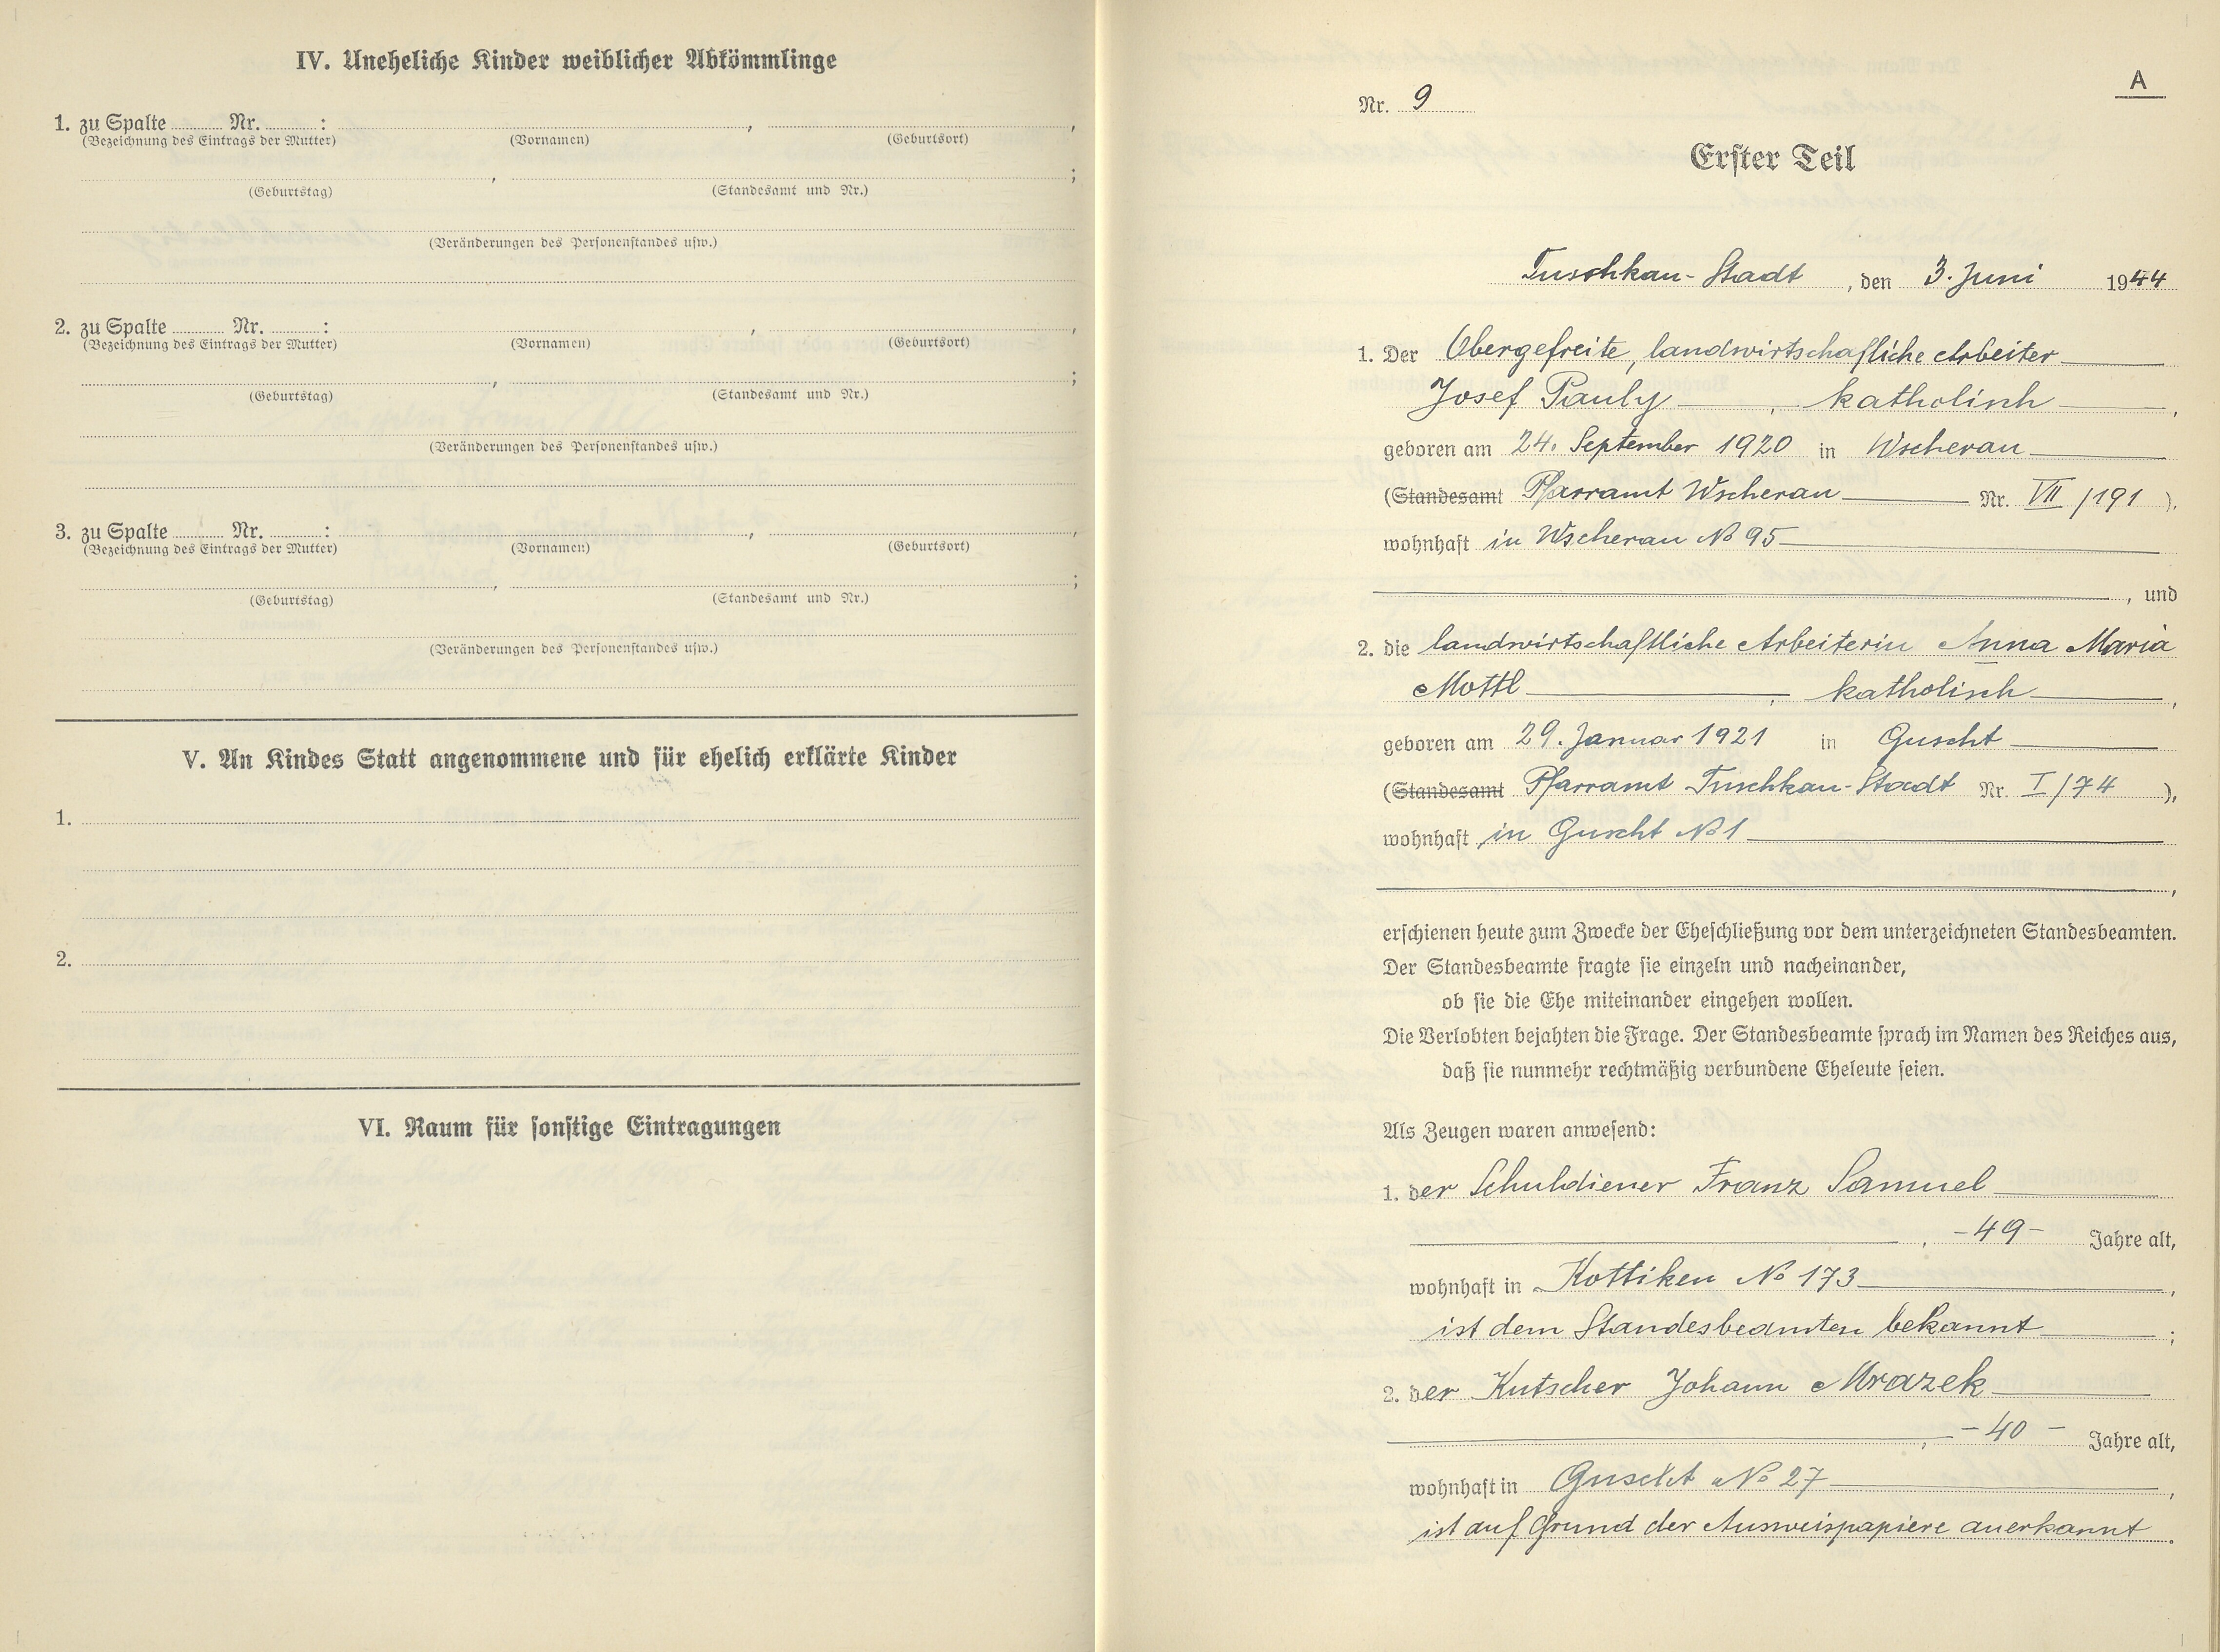 IV. Uneheliche Kinder weiblicher Abkömmlinge
1. zu Spalte ........ Nr. ........ : , ,
(Bezeichnung des Eintrags der Mutter) (Vornamen) (Geburtsort)
, ;
(Geburtstag) (Standesamt und Nr.)
(Veränderungen des Personenstandes usw.)
2. zu Spalte ........ Nr. ........ : , ,
(Bezeichnung des Eintrags der Mutter) (Vornamen) (Geburtsort)
, ;
(Geburtstag) (Standesamt und Nr.)
(Veränderungen des Personenstandes usw.)
3. zu Spalte ........ Nr. ........ : , ,
(Bezeichnung des Eintrags der Mutter) (Vornamen) (Geburtsort)
, ;
(Geburtstag) (Standesamt und Nr.)
(Veränderungen des Personenstandes usw.)
V. An Kindes Statt angenommene und für ehelich erklärte Kinder
1.
2.
VI. Raum für sonstige Eintragungen
A
Nr. 9
Erster Teil
Tuschkau-Stadt, den 3. Juni 1944
1. Der Obergefreite, landwirtschafliche Arbeiter
Josef Pauly, katholisch,
geboren am 24. September 1920 in Wscherau
(Standesamt Pfarramt Wscherau Nr. VII/191),
wohnhaft in Wscherau No 95
, und
2. die landwirtschaftliche Arbeiterin Anna Maria
Mottl, katholisch,
geboren am 29. Januar 1921 in Guscht
(Standesamt Pfarramt Tuschkau-Stadt Nr. I/74),
wohnhaft in Guscht No 1
,
erschienen heute zum Zwecke der Eheschließung vor dem unterzeichneten Standesbeamten.
Der Standesbeamte fragte sie einzeln und nacheinander,
ob sie die Ehe miteinander eingehen wollen.
Die Verlobten bejahten die Frage. Der Standesbeamte sprach im Namen des Reiches aus,
daß sie nunmehr rechtmäßig verbundene Eheleute seien.
Als Zeugen waren anwesend:
1. der Schuldiener Franz Samuel
, -49- Jahre alt,
wohnhaft in Kottiken No 173,
ist dem Standesbeamten bekannt;
2. der Kutscher Johann Mrazek
, -40- Jahre alt,
wohnhaft in Guscht No 27,
ist auf Grund der Ausweispapiere anerkannt.